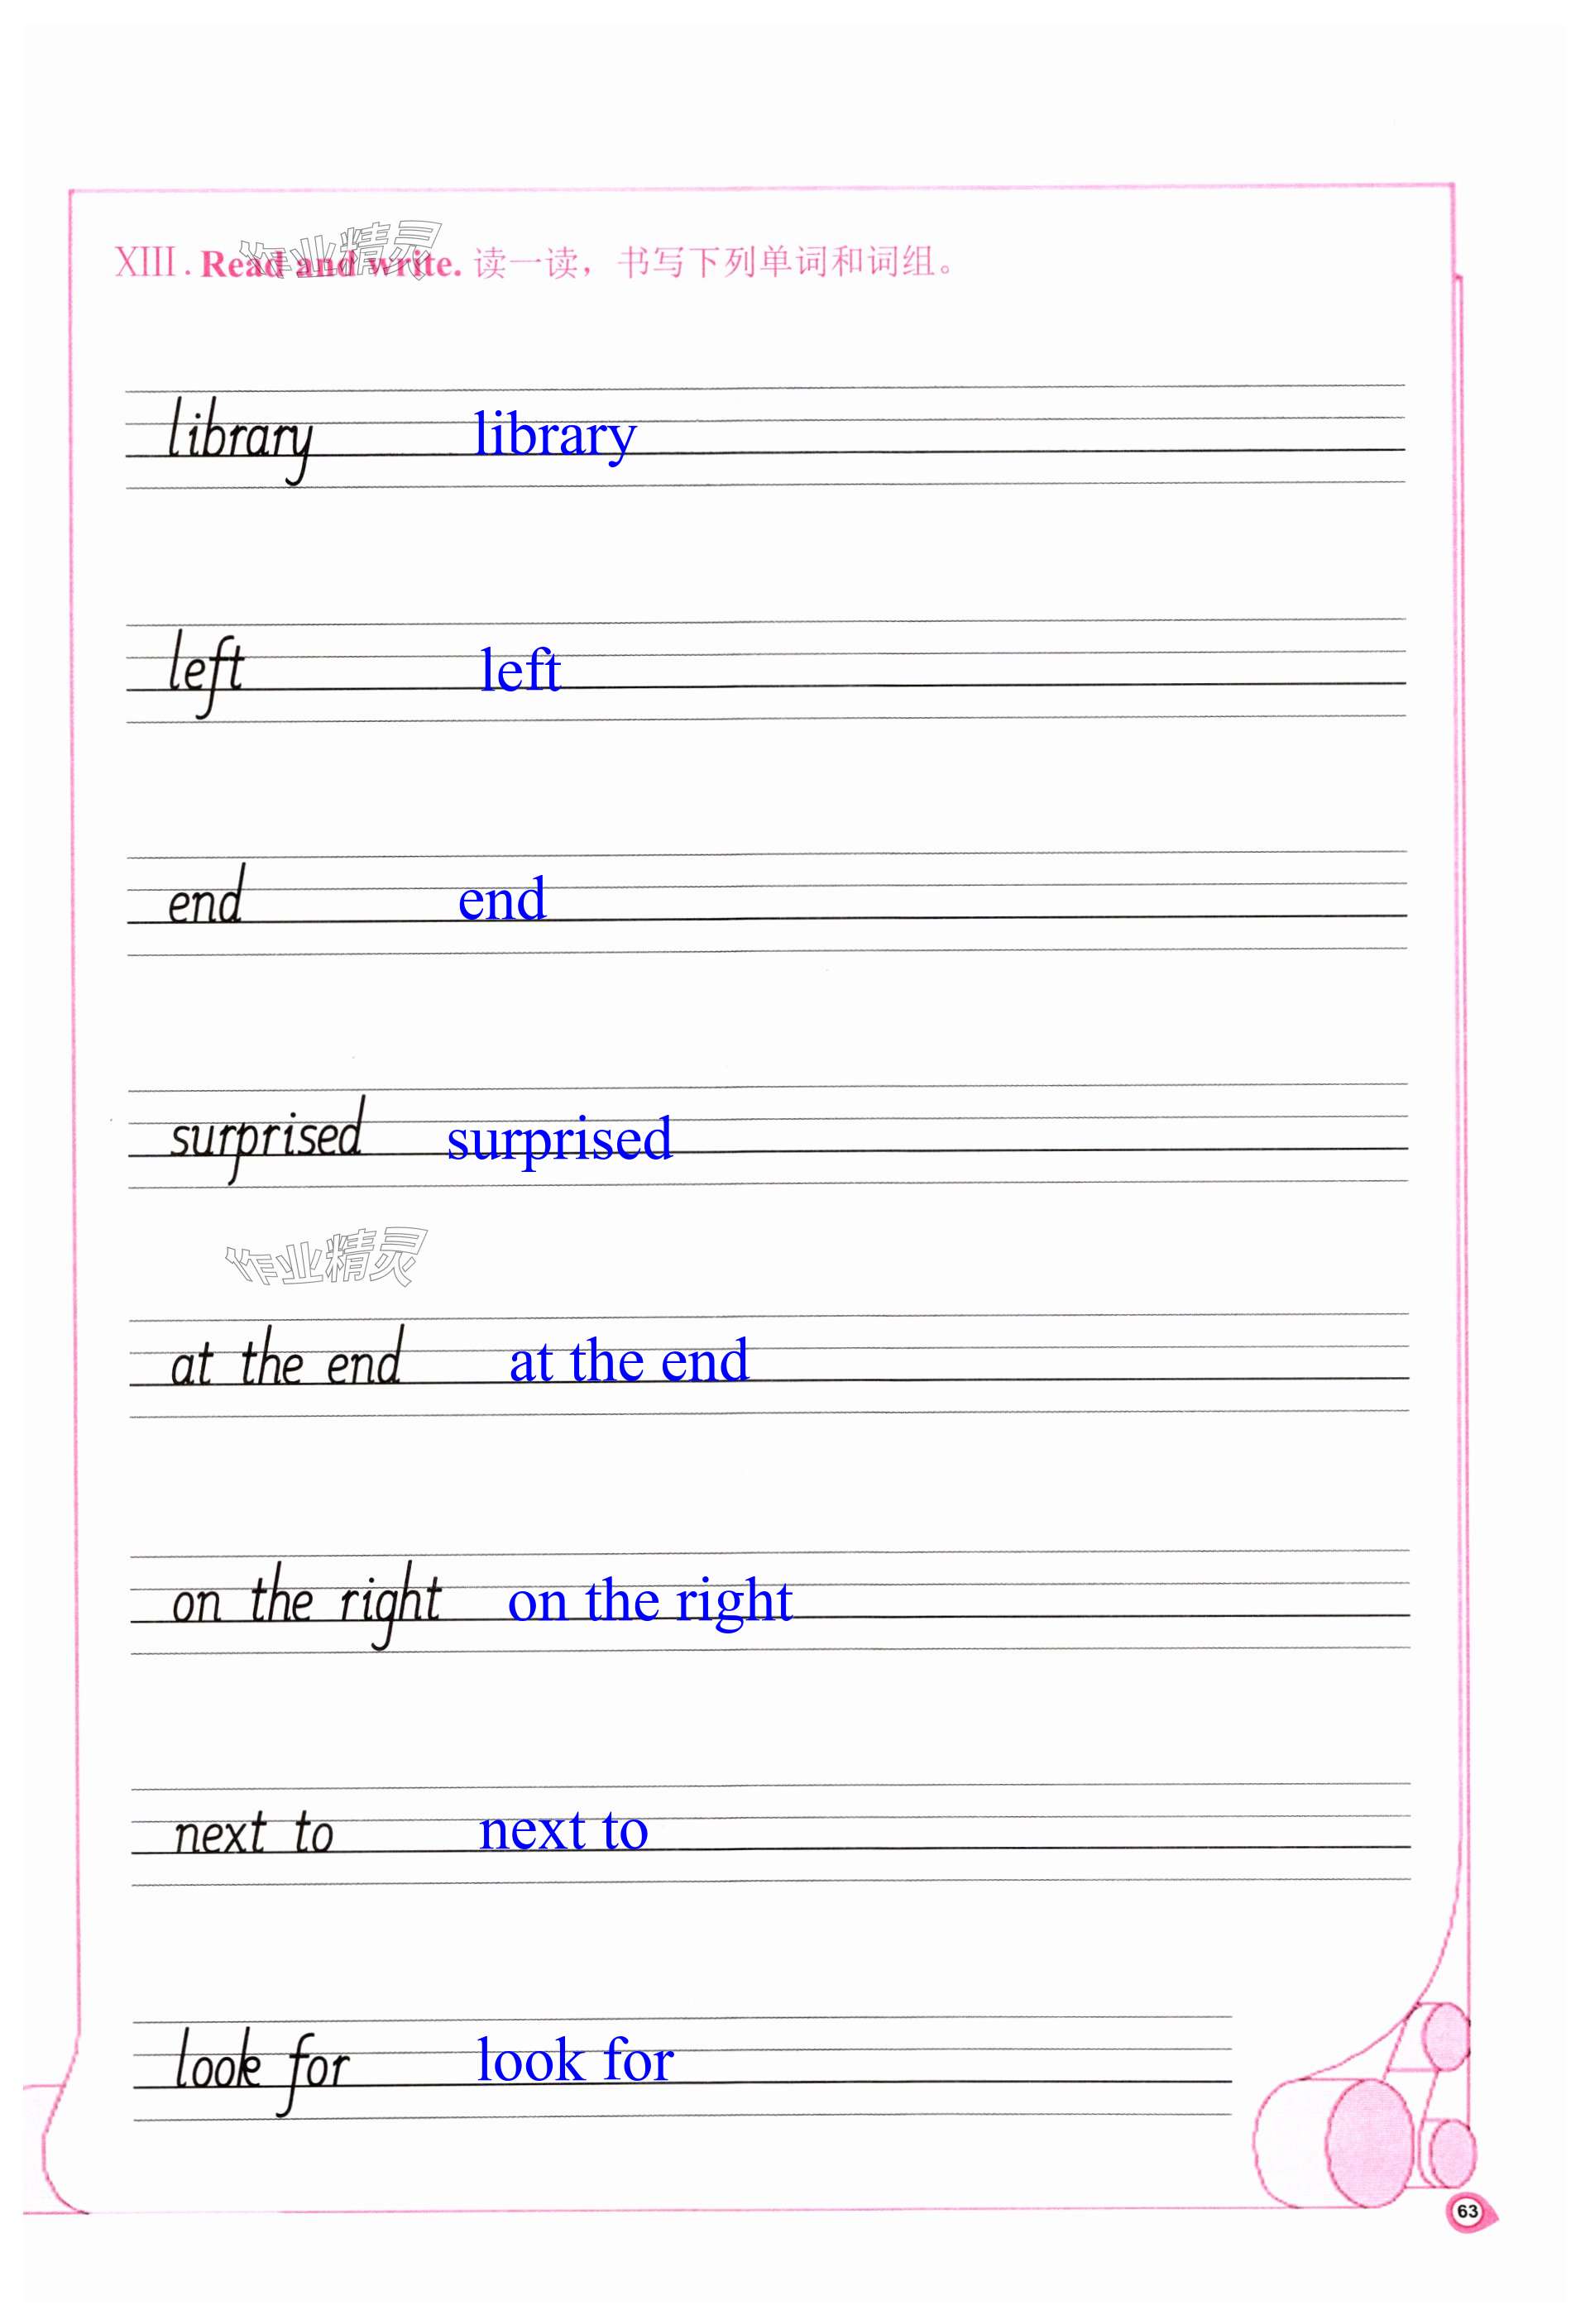 作业精灵
XIII. Read and write. 读一读，书写下列单词和词组。
library library
left left
end end
surprised surprised
作业精灵
at the end at the end
on the right on the right
next to next to
look for look for
63